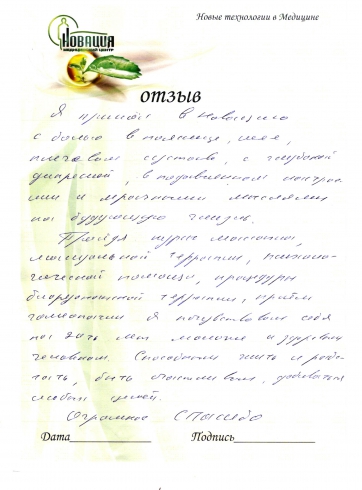 Новые технологии в Медицине
Новация
медицинский центр
отзыв
Я пришёл в Новацию
с болью в пояснице, шее,
плечевом суставе, с глубокой
депрессией, в подавленном настрое-
нии и мрачными мыслями
на будущую жизнь.
Пройдя курс массажа,
мануальной терапии, психоло-
гической помощи, процедуры
биорезонансной терапии, приём
гомеопатии я почувствовал себя
на 20 лет моложе и здоровым
человеком. Способным жить и рабо-
тать, быть счастливым, добиваться
любых целей.
Огромное спасибо
Дата Подпись